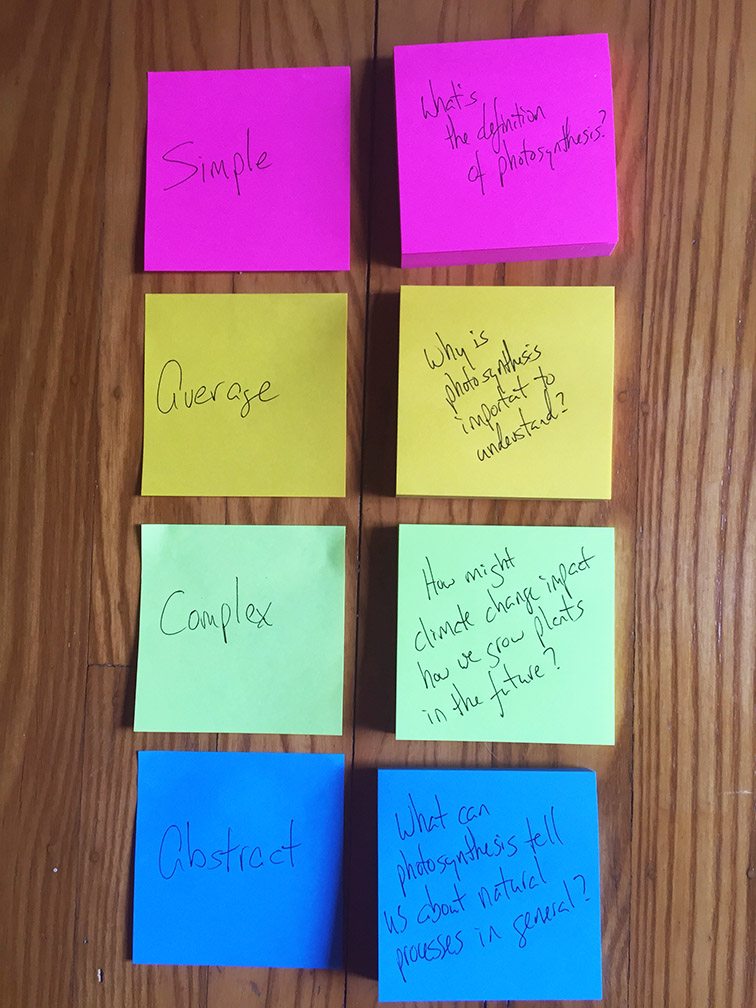 Simple
What's
the definition
of photosynthesis?
Average
Why is
photosynthesis
importat to
understand?
Complex
How might
climate change impact
how we grow plants
in the future?
Abstract
What can
photosynthesis tell
us about natural
processes in general?